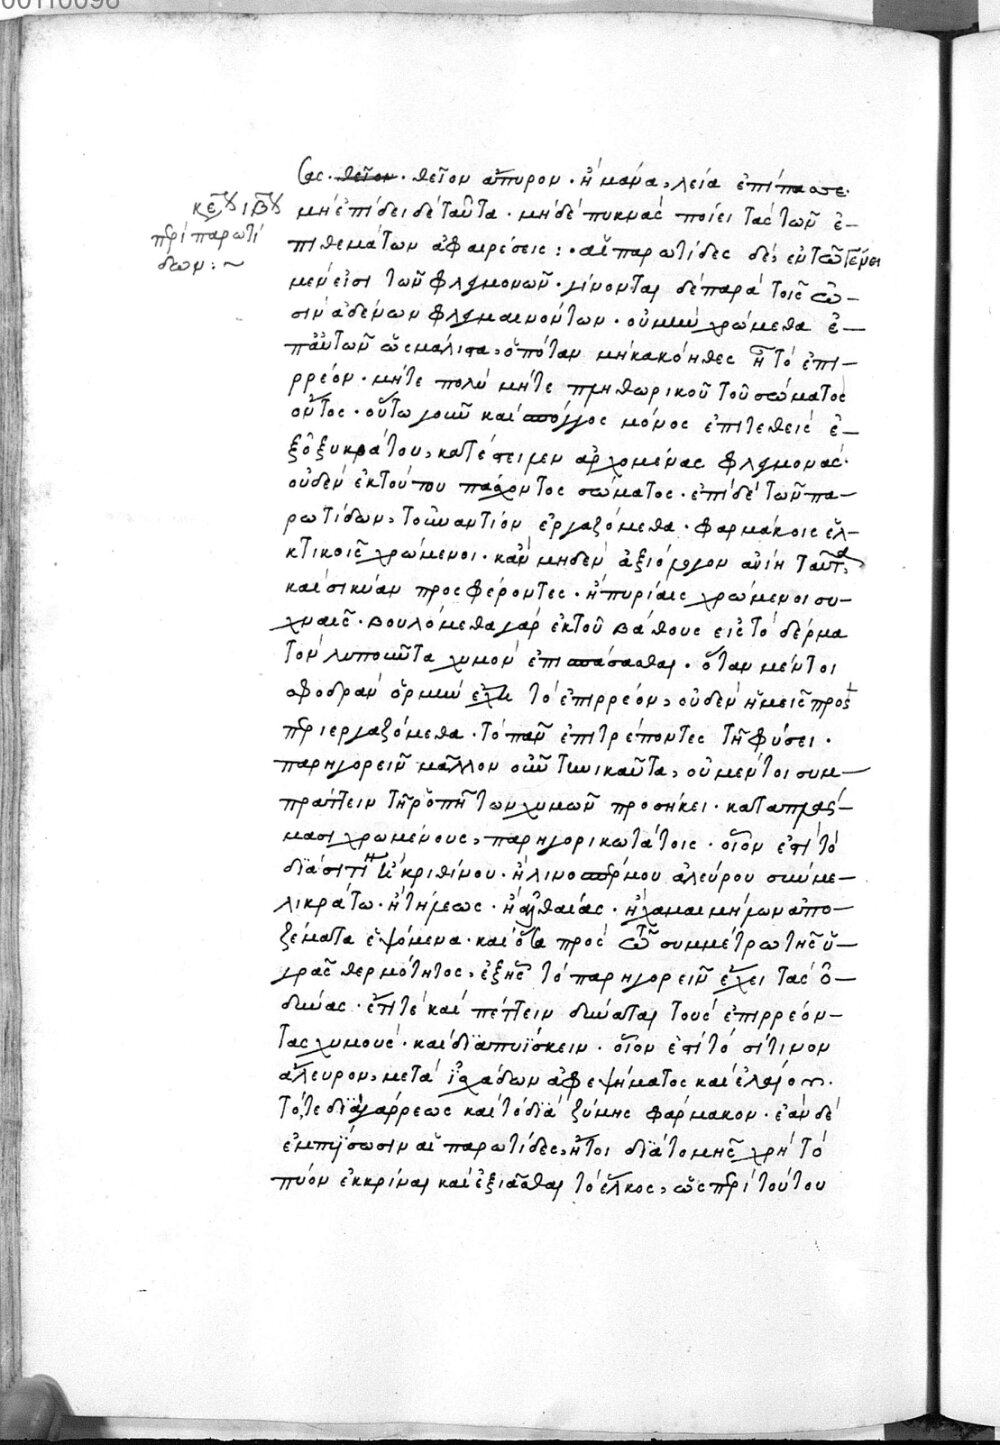 σας. θεῖον. θεῖον ἄπυρον. ἢ μάνα, λεῖα ἐπίπασσε.
κεφ ιβου
περὶ παρωτί
δων:~
μὴ ἐπίδει δὲ ταῦτα. μηδὲ πυκνὰς ποίει τὰς τῶν ἐ-
πιθεμάτων ἀφαιρέσεις:. αἱ παρωτίδες δὲ, ἐν τῷ γένει
μὲν εἰσὶ τῶν φλεγμονῶν. γίνονται δὲ παρὰ τοῖς ὠ-
σὶν ἀδένων φλεγμαινόντων. οὐ μὴν χρώμεθα ἐ-
π' αὐτῶν ὡς μάλιστα, ὁπόταν μὴ κακόηθες ᾖ τὸ ἐπι-
ρρέον. μήτε πολὺ μήτε πληθωρικοῦ τοῦ σώματος
ὄντος. οὕτω γοῦν καὶ σπόγγος μόνος ἐπιτεθεὶς ἐ-
ξ ὀξυκράτου, κατέστειλεν ἀρχομένας φλεγμονάς.
οὐδὲν ἐκ τούτου πάσχοντος σώματος. ἐπὶ δὲ τῶν πα-
ρωτίδων, τοὐναντίον ἐργαζόμεθα. φαρμάκοις ἑλ-
κτικοῖς χρώμενοι. κἂν μηδὲν ἀξιόλογον ἀνύῃ ταῦτα,
καὶ σικύαν προσφέροντες. ἢ πυρίαις χρώμενοι συ-
χναῖς. βουλόμεθα γὰρ ἐκ τοῦ βάθους εἰς τὸ δέρμα
τὸν λυποῦντα χυμὸν ἐπισπάσασθαι. ὅταν μέντοι
σφοδρὰν ὁρμὴν ἔχῃ τὸ ἐπιρρέον, οὐδὲν ἡμεῖς προσ
περιεργαζόμεθα. τὸ πᾶν ἐπιτρέποντες τῇ φύσει.
παρηγορεῖν μᾶλλον οὖν τηνικαῦτα, οὐ μέντοι συμ-
πράττειν τῇ ῥοπῇ τῶν χυμῶν προσήκει. καταπλάσ-
μασι χρωμένους, παρηγορικωτάτοις. οἷον ἐστὶ τὸ
διὰ σιτίνου ἢ κριθίνου. ἢ λινοσπέρμου ἀλεύρου σὺν με-
λικράτω. ἢ τήλεως. ἢ ἀλθαίας. ἢ χαμαιμήλων ἀπο-
ζέματα ἑψόμενα. καὶ ὅσα πρὸς τῷ συμμέτρω τῆς ὑ-
γρᾶς θερμότητος, ἑξῆς τὸ παρηγορεῖν ἔχει τὰς ὀ-
δύνας. ἔτι τὲ καὶ πέττειν δύναται τοὺς ἐπιρρέον-
τας χυμοὺς. καὶ διαπυΐσκειν. οἷον ἐστὶ τὸ σίτινον
ἄλευρον, μετὰ ἰσχάδων ἀφεψήματος καὶ ἐλαίου.
τό, τε διὰ γάρρεως καὶ τὸ διὰ ζύμης φάρμακον. ἐὰν δὲ
ἐμπυΐσωσιν αἱ παρωτίδες, ἤτοι διὰ τομῆς χρὴ τὸ
πύον ἐκκρίναι καὶ ἐξιᾶσθαι τὸ ἕλκος, ὡς περὶ τούτου